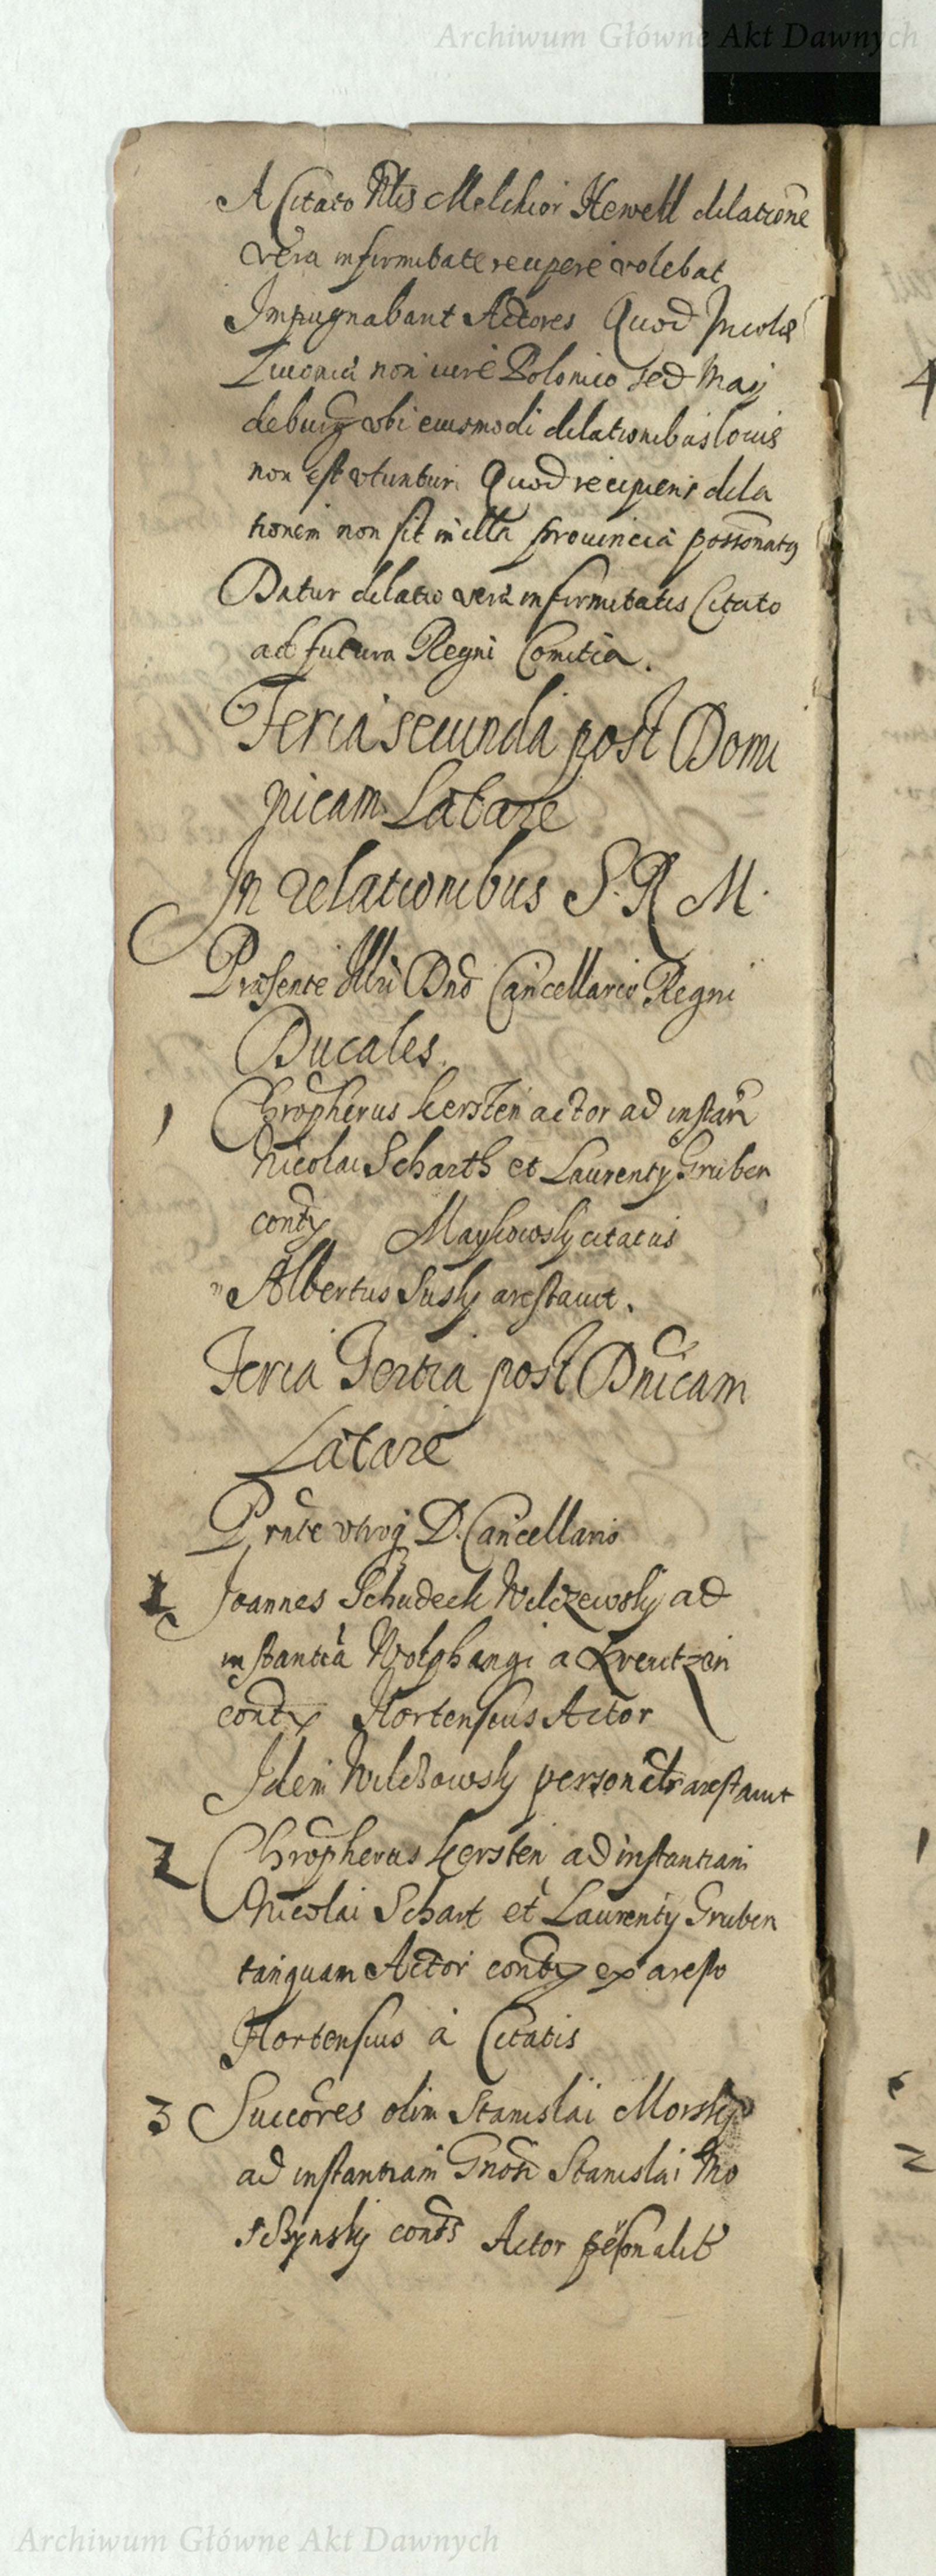 Archiwum Główne Akt Dawnych
A Citato Nblis Melchior Hewell dilatione
vera infirmitate recipere volebat
Impugnabant Actores Quod Incolæ
Liuoniæ non iure Polonico sed Maij
deburg vbi eiusmodi dilationibus locus
non est vtuntur. Quod recipiens dila
tionem non sit in illa prouincia possionatus
Datur dilatio veræ infirmitatis Citato
ad futura Regni Comitia.
Feria secunda post Domi
nicam Lætare
In relationibus S. R M.
Præsente Illri Dno Cancellario Regni
Ducales.
1 Chropherus Kersten actor ad instan
Nicolai Scharth et Laurenty Gruben
contx Maykowsky citatus
Albertus Susky arestauit.
Feria Tertia post Dnicam
Lætare
Prnte vtroq D. Cancellario
1 Joannes Schudeck Wilczewsky ad
instantia Wolphangi a Kreutzen
contx Hortensius Actor
Idem Wilckowsky personalr arestauit
2 Chropherus Kersten ad instantiam
Nicolai Schart et Laurenty Gruben
tanquam Actor contx ex aresto
Hortensius à Citatis
3 Succores olim Stanislai Morsky
ad instantiam Gnosi Stanislai Mo
schynsky conts Actor psonalit
Archiwum Główne Akt Dawnych